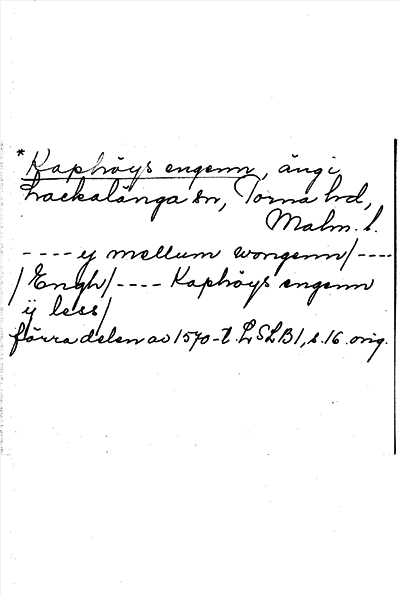 * Kaphöys engenn, äng i
Lackalänga sn, Torna hd,
Malm. l.
---- ij mellum wongenn/----
/Engh/---- Kaphöys engenn
ij less/
förra delen av 1570-t. LSLB1, s. 16. orig.